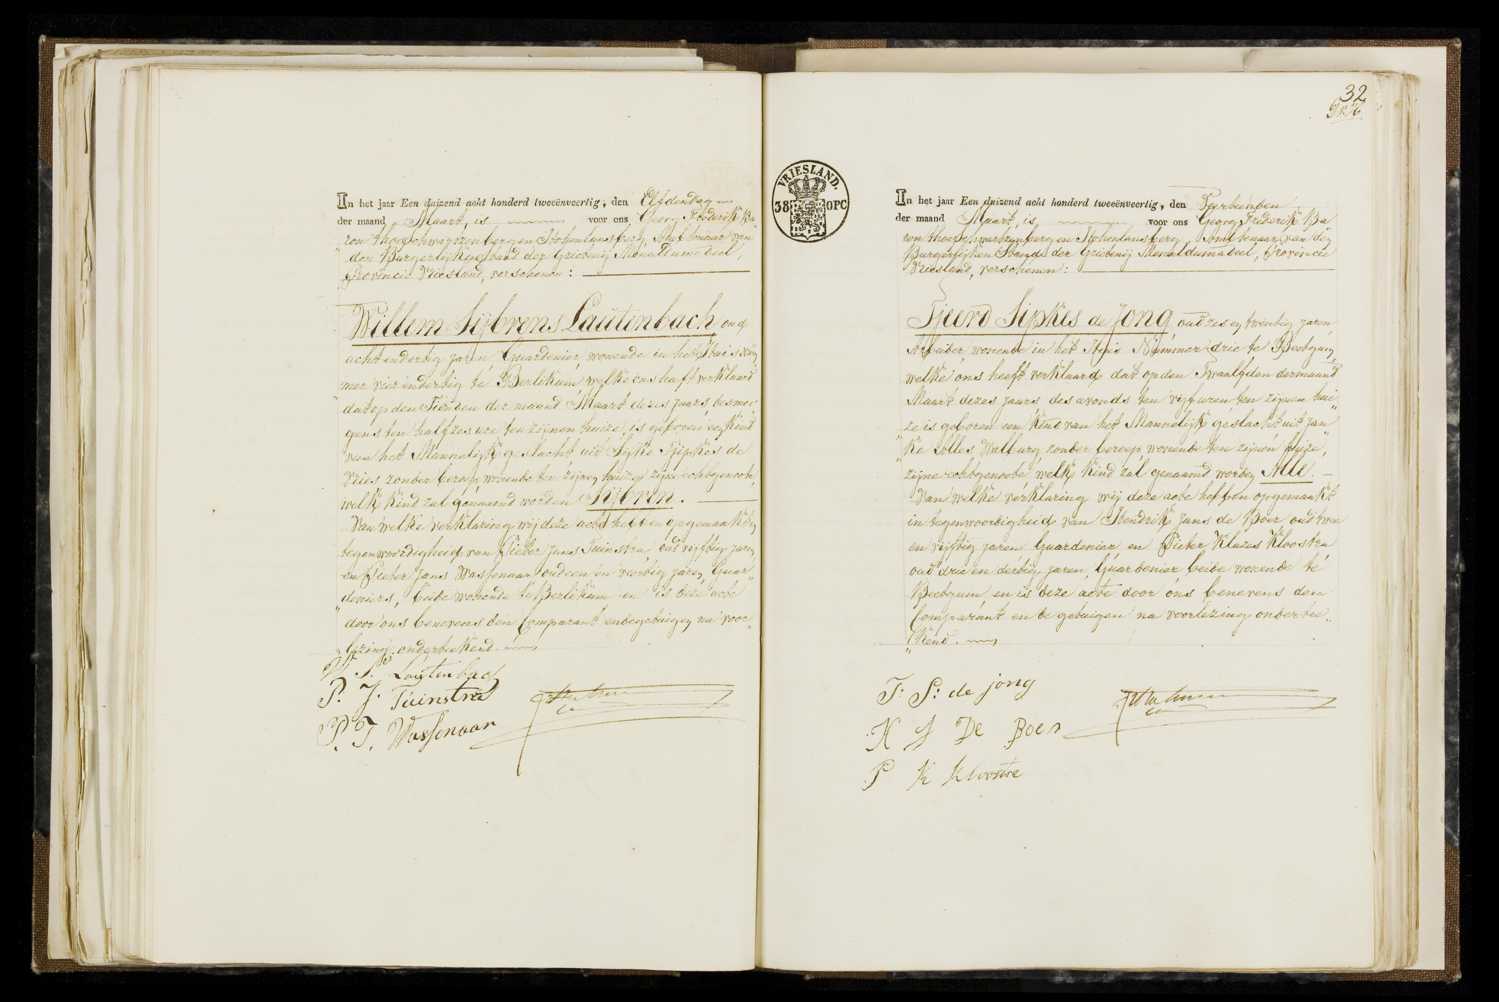 In het jaar Een duizend acht honderd tweeënveertig, den Elfden dag
der maand Maart, is voor ons Georg Frederik Ba-
ron thoe Schwartzenberg en Hohenlansberg, Ambtenaar van
den Burgerlijken Stand der Grietenij Menaldumadeel,
Provincie Vriesland, verschenen:
Willem Sijbrens Lautenbach oud
acht en dertig jaren, Guardenier, wonende in het Huis num
mer vier en dertig te Berlikum, welke ons heeft verklaard
dat op den Tienden der maand Maart dezes jaars, des mor
gens ten half zes ure ten zijnen huize, is geboren een kind
van het Mannelijk geslacht uit Sijke Sjipkes de
Vries zonder beroep, wonende ten zijnen huize, zijne echtgenoote,
welk kind zal genaamd worden Sijbren.
Van welke verklaring wij deze acte hebben opgemaakt in
tegenwoordigheid van Pieter Jans Tuinstra, oud vijftig jaren
en Pieter Jans Wassenaar oud een en veertig jaren, Guar
deniers, beide wonende te Berlikum en is deze acte
door ons benevens den Comparant en de getuigen na voor
lezing onderteekend.
W. S. Lautenbach
P. J. Tuinstra
P. J. Wassenaar
32
VRIESLAND.
38 OPC
In het jaar Een duizend acht honderd tweeënveertig, den Veertienden
der maand Maart, is voor ons Georg Frederik Ba
ron thoe Schwartzenberg en Hohenlansberg, Ambtenaar van den
Burgerlijken Stand der Grietenij Menaldumadeel, Provincie
Vriesland, verschenen:
Tjeerd Sipkes de Jong, oud zes en twintig jaren
Arbeider, wonende in het Huis Nummer drie te Beetgum,
welke ons heeft verklaard dat op den Twaalfden der maand
Maart dezes jaars des avonds ten vijf uren ten zijnen hui
ze is geboren een kind van het Mannelijk geslacht uit Jan
ke Lolles Walburg zonder beroep, wonende ten zijnen huize,
zijne echtgenoote welk kind zal genaamd worden Alle.
Van welke verklaring wij deze acte hebben opgemaakt
in tegenwoordigheid van Hendrik Jans de Boer oud twee
en vijftig jaren Guardenier, en Pieter Klazes Kloostra
oud drie en dertig jaren, Guardenier beide wonende te
Beetgum, en is deze acte door ons benevens den
Comparant en de getuigen na voorlezing ondertee
kend.
T. S. de jong
H J De Boer
P K Kloostra